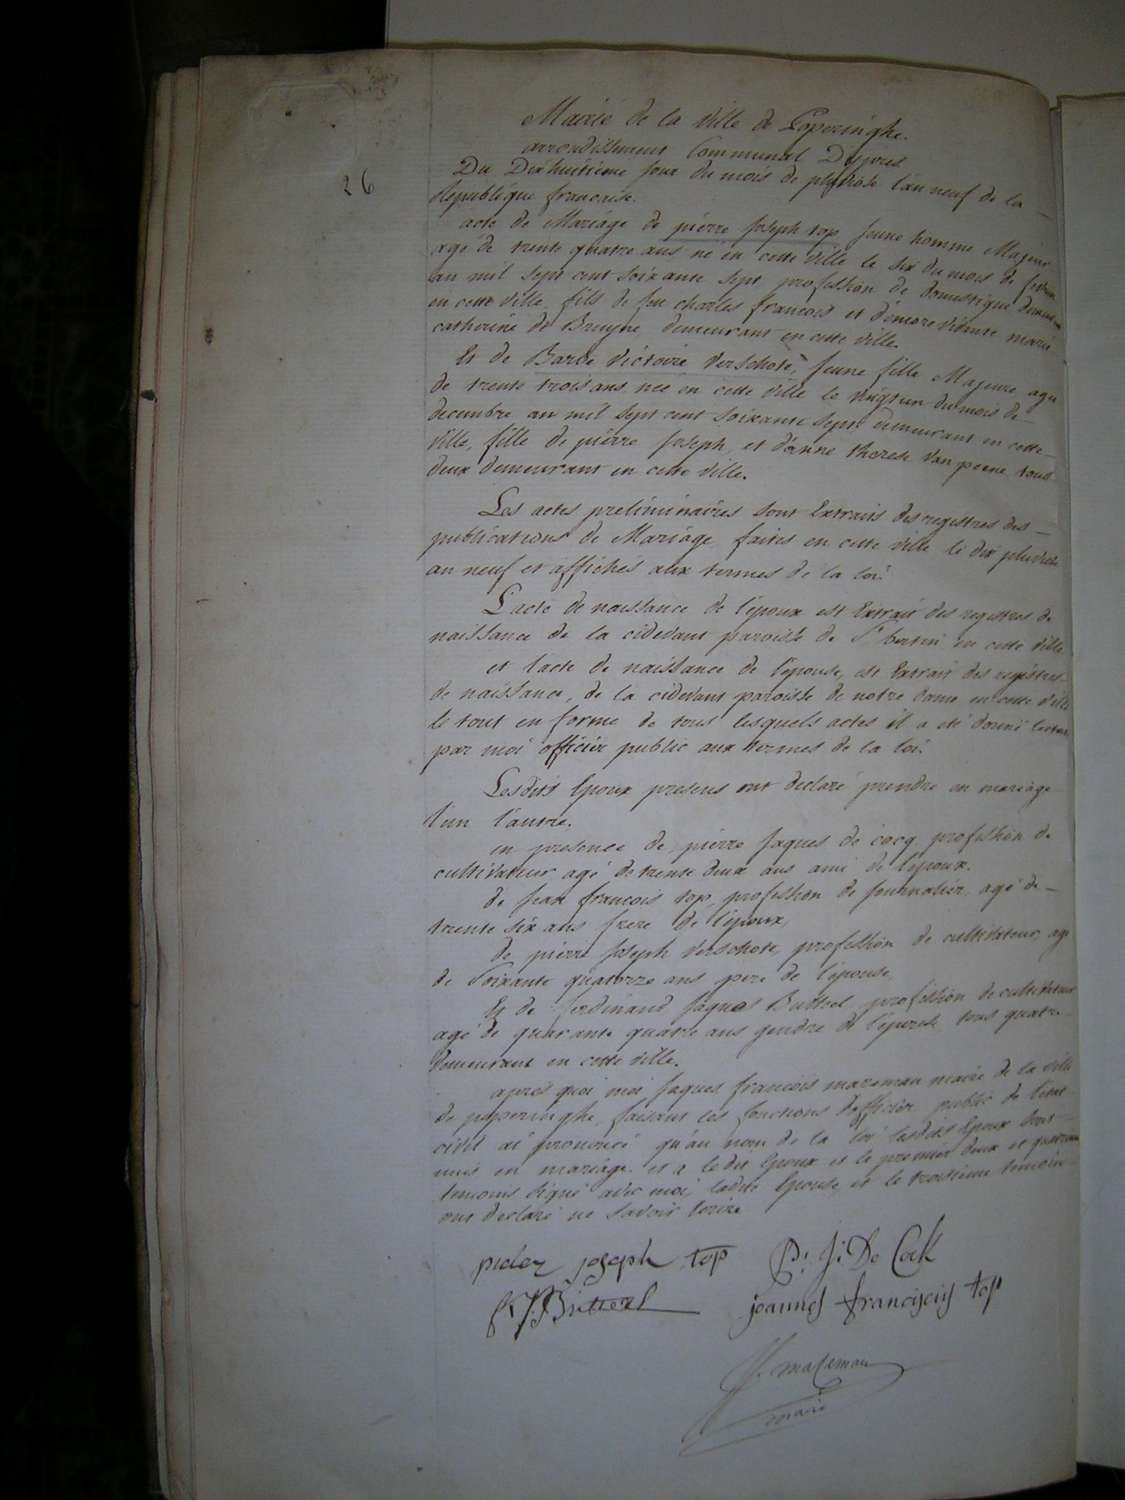 Mairie de la ville de Poperinghe.
arrondissement Communal Dypres
26
Du Dixhuitième jour du mois de pluviose l'an neuf de la
Republique francaise.
acte de Mariage de pierre Joseph top Jeune homme Majeur
agé de trente quatre ans né en cette ville le six du mois de fevrier
an mil sept cent soixante sept profession de domestique demeurant
en cette ville, fils de feu charles francois et d'encore vivante marie
catherine de Bruyne demeurant en cette ville.
Et de Barbe Victoire Verschote, Jeune fille Majeure agée
de trente trois ans, née en cette ville le vingt un du mois de
decembre an mil sept cent soixante sept demeurant en cette
ville, fille de pierre Joseph, et d'anne therese Van peene tous
deux demeurant en cette ville.
Les actes preliminaires sont Extraits des registres des
publications de Mariage faites en cette ville le dix pluviose
an neuf et affichés aux termes de la loi.
L'acte de naissance de l'époux est Extrait des registres de
naissance de la cidevant paroisse de St bertin en cette ville
et l'acte de naissance de l'epouse, est Extrait des registres
de naissance, de la cidevant paroisse de notre dame en cette ville
le tout en forme de tous lesquels actes il a été donné lecture
par moi officier public aux termes de la loi.
Lesdits Epoux presens ont declaré prendre en mariage
l'un l'autre.
en presence de pierre Jaques de cocq profession de
cultivateur agé de trente deux ans ami de l'époux.
de Jean francois top, profession de Journalier, agé de
trente six ans frere de l'époux,
de pierre Joseph Verschote, profession de cultivateur, agé
de Soixante quatorze ans pere de l'épouse,
Et de ferdinand Jaques Buttel profession de cultivateur
agé de quarante quatre ans gendre de l'épouse, tous quatre
demeurant en cette ville.
apres quoi moi Jaques francois mazeman maire de la ville
de poperinghe, faisant les fonctions d'officier public de l'etat
civil ai prononcé qu'au nom de la loi lesdits Epoux sont
unis en mariage et a ledit Epoux et le premier deux et quatrieme
temoins signé avec moi, ladite Epouse, et le troisieme temoin
ont declaré ne savoir Ecrire
pieter joseph top P: J: De Cock
joannes franciscus top
J. mazeman
maire